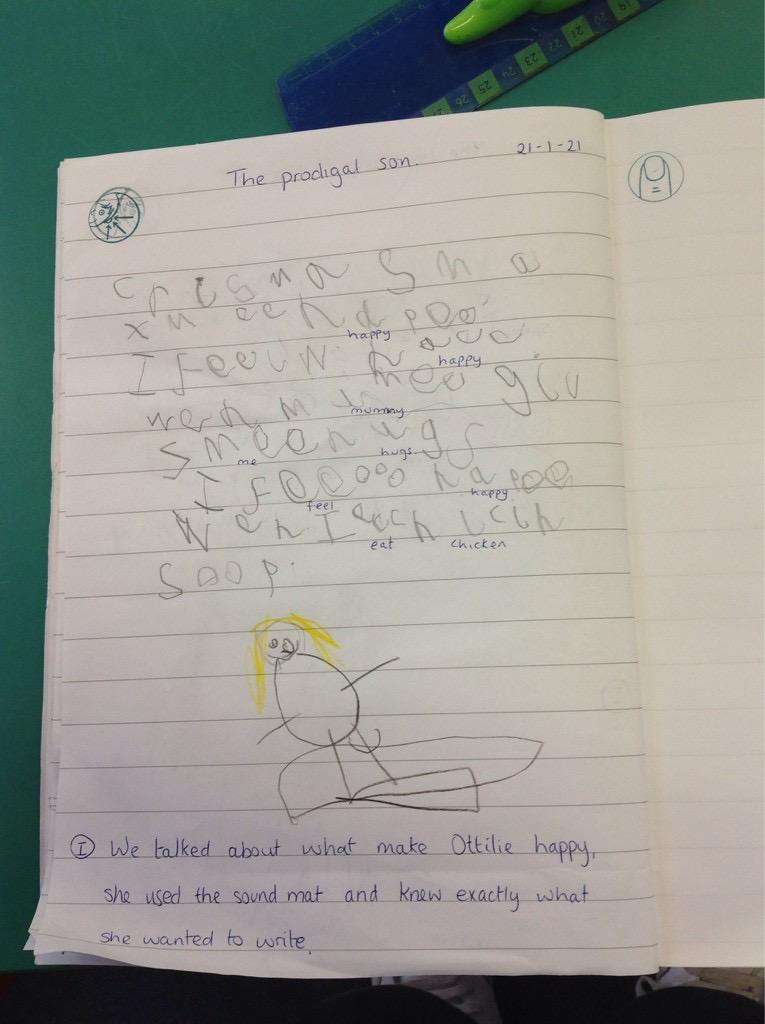 The prodigal son.
21-1-21
crismas ma
happy
I feel w
happy
wen giv
mummy
s mee hugs
me hugs
I hapee
feel happy
wen I
eat chicken
soop.
I We talked about what make Ottilie happy,
she used the sound mat and knew exactly what
she wanted to write.
19
20
21
22
23
24
25
26